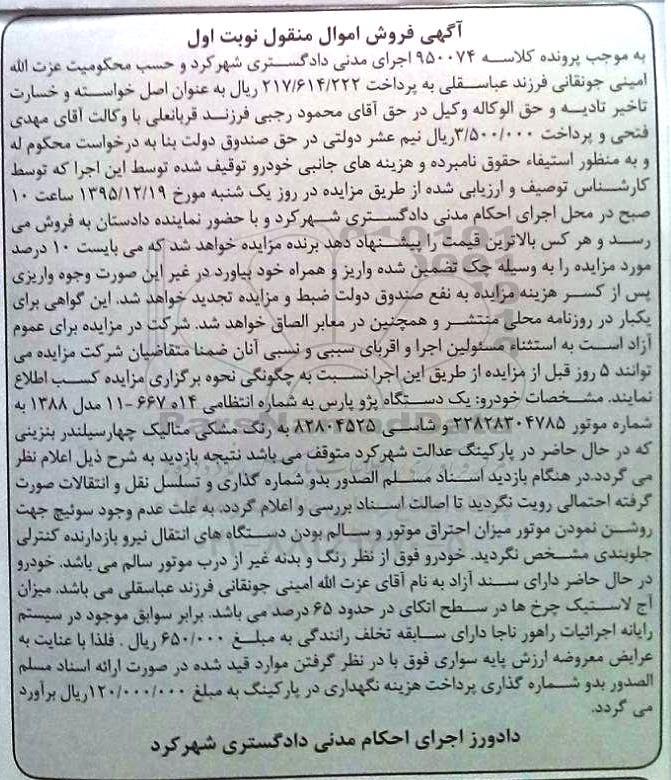 آگهی فروش اموال منقول نوبت اول
به موجب پرونده کلاسه ۹۵۰۰۷۴ اجرای مدنی دادگستری شهرکرد و حسب محکومیت عزت الله
امینی جونقانی فرزند عباسقلی به پرداخت ۲۱۷/۶۱۴/۲۲۲ ریال به عنوان اصل خواسته و خسارت
تاخیر تادیه و حق الوکاله وکیل در حق آقای محمود رجبی فرزند قربانعلی با وکالت آقای مهدی
فتحی و پرداخت ۳/۵۰۰/۰۰۰ریال نیم عشر دولتی در حق صندوق دولت بنا به درخواست محکوم له
و به منظور استیفاء حقوق نامبرده و هزینه های جانبی خودرو توقیف شده توسط این اجرا که توسط
کارشناس توصیف و ارزیابی شده از طریق مزایده در روز یک شنبه مورخ ۱۳۹۵/۱۲/۱۹ ساعت ۱۰
صبح در محل اجرای احکام مدنی دادگستری شهرکرد و با حضور نماینده دادستان به فروش می
رسد و هر کس بالاترین قیمت را پیشنهاد دهد برنده مزایده خواهد شد که می بایست ۱۰ درصد
مورد مزایده را به وسیله چک تضمین شده واریز و همراه خود بیاورد در غیر این صورت وجوه واریزی
پس از کسر هزینه مزایده به نفع صندوق دولت ضبط و مزایده تجدید خواهد شد. این گواهی برای
یکبار در روزنامه محلی منتشر و همچنین در معابر الصاق خواهد شد. شرکت در مزایده برای عموم
آزاد است به استثناء مسئولین اجرا و اقربای سببی و نسبی آنان ضمنا متقاضیان شرکت مزایده می
توانند ۵ روز قبل از مزایده از طریق این اجرا نسبت به چگونگی نحوه برگزاری مزایده کسب اطلاع
نمایند. مشخصات خودرو: یک دستگاه پژو پارس به شماره انتظامی ۱۴ه ۶۶۷ -۱۱ مدل ۱۳۸۸ به
شماره موتور ۲۲۸۲۸۳۰۴۷۸۵ و شاسی ۸۲۸۰۴۵۲۵ به رنگ مشکی متالیک چهارسیلندر بنزینی
که در حال حاضر در پارکینگ عدالت شهرکرد متوقف می باشد نتیجه بازدید به شرح ذیل اعلام نظر
می گردد.در هنگام بازدید اسناد مسلم الصدور بدو شماره گذاری و تسلسل نقل و انتقالات صورت
گرفته احتمالی رویت نگردید تا اصالت اسناد بررسی و اعلام گردد. به علت عدم وجود سوئیچ جهت
روشن نمودن موتور میزان احتراق موتور و سالم بودن دستگاه های انتقال نیرو بازدارنده کنترلی
جلوبندی مشخص نگردید. خودرو فوق از نظر رنگ و بدنه غیر از درب موتور سالم می باشد. خودرو
در حال حاضر دارای سند آزاد به نام آقای عزت الله امینی جونقانی فرزند عباسقلی می باشد. میزان
آج لاستیک چرخ ها در سطح اتکای در حدود ۶۵ درصد می باشد. برابر سوابق موجود در سیستم
رایانه اجرائیات راهور ناجا دارای سابقه تخلف رانندگی به مبلغ ۶۵۰/۰۰۰ ریال . فلذا با عنایت به
عرایض معروضه ارزش پایه سواری فوق با در نظر گرفتن موارد قید شده در صورت ارائه اسناد مسلم
الصدور بدو شماره گذاری پرداخت هزینه نگهداری در پارکینگ به مبلغ ۱۲۰/۰۰۰/۰۰۰ریال برآورد
می گردد.
دادورز اجرای احکام مدنی دادگستری شهرکرد